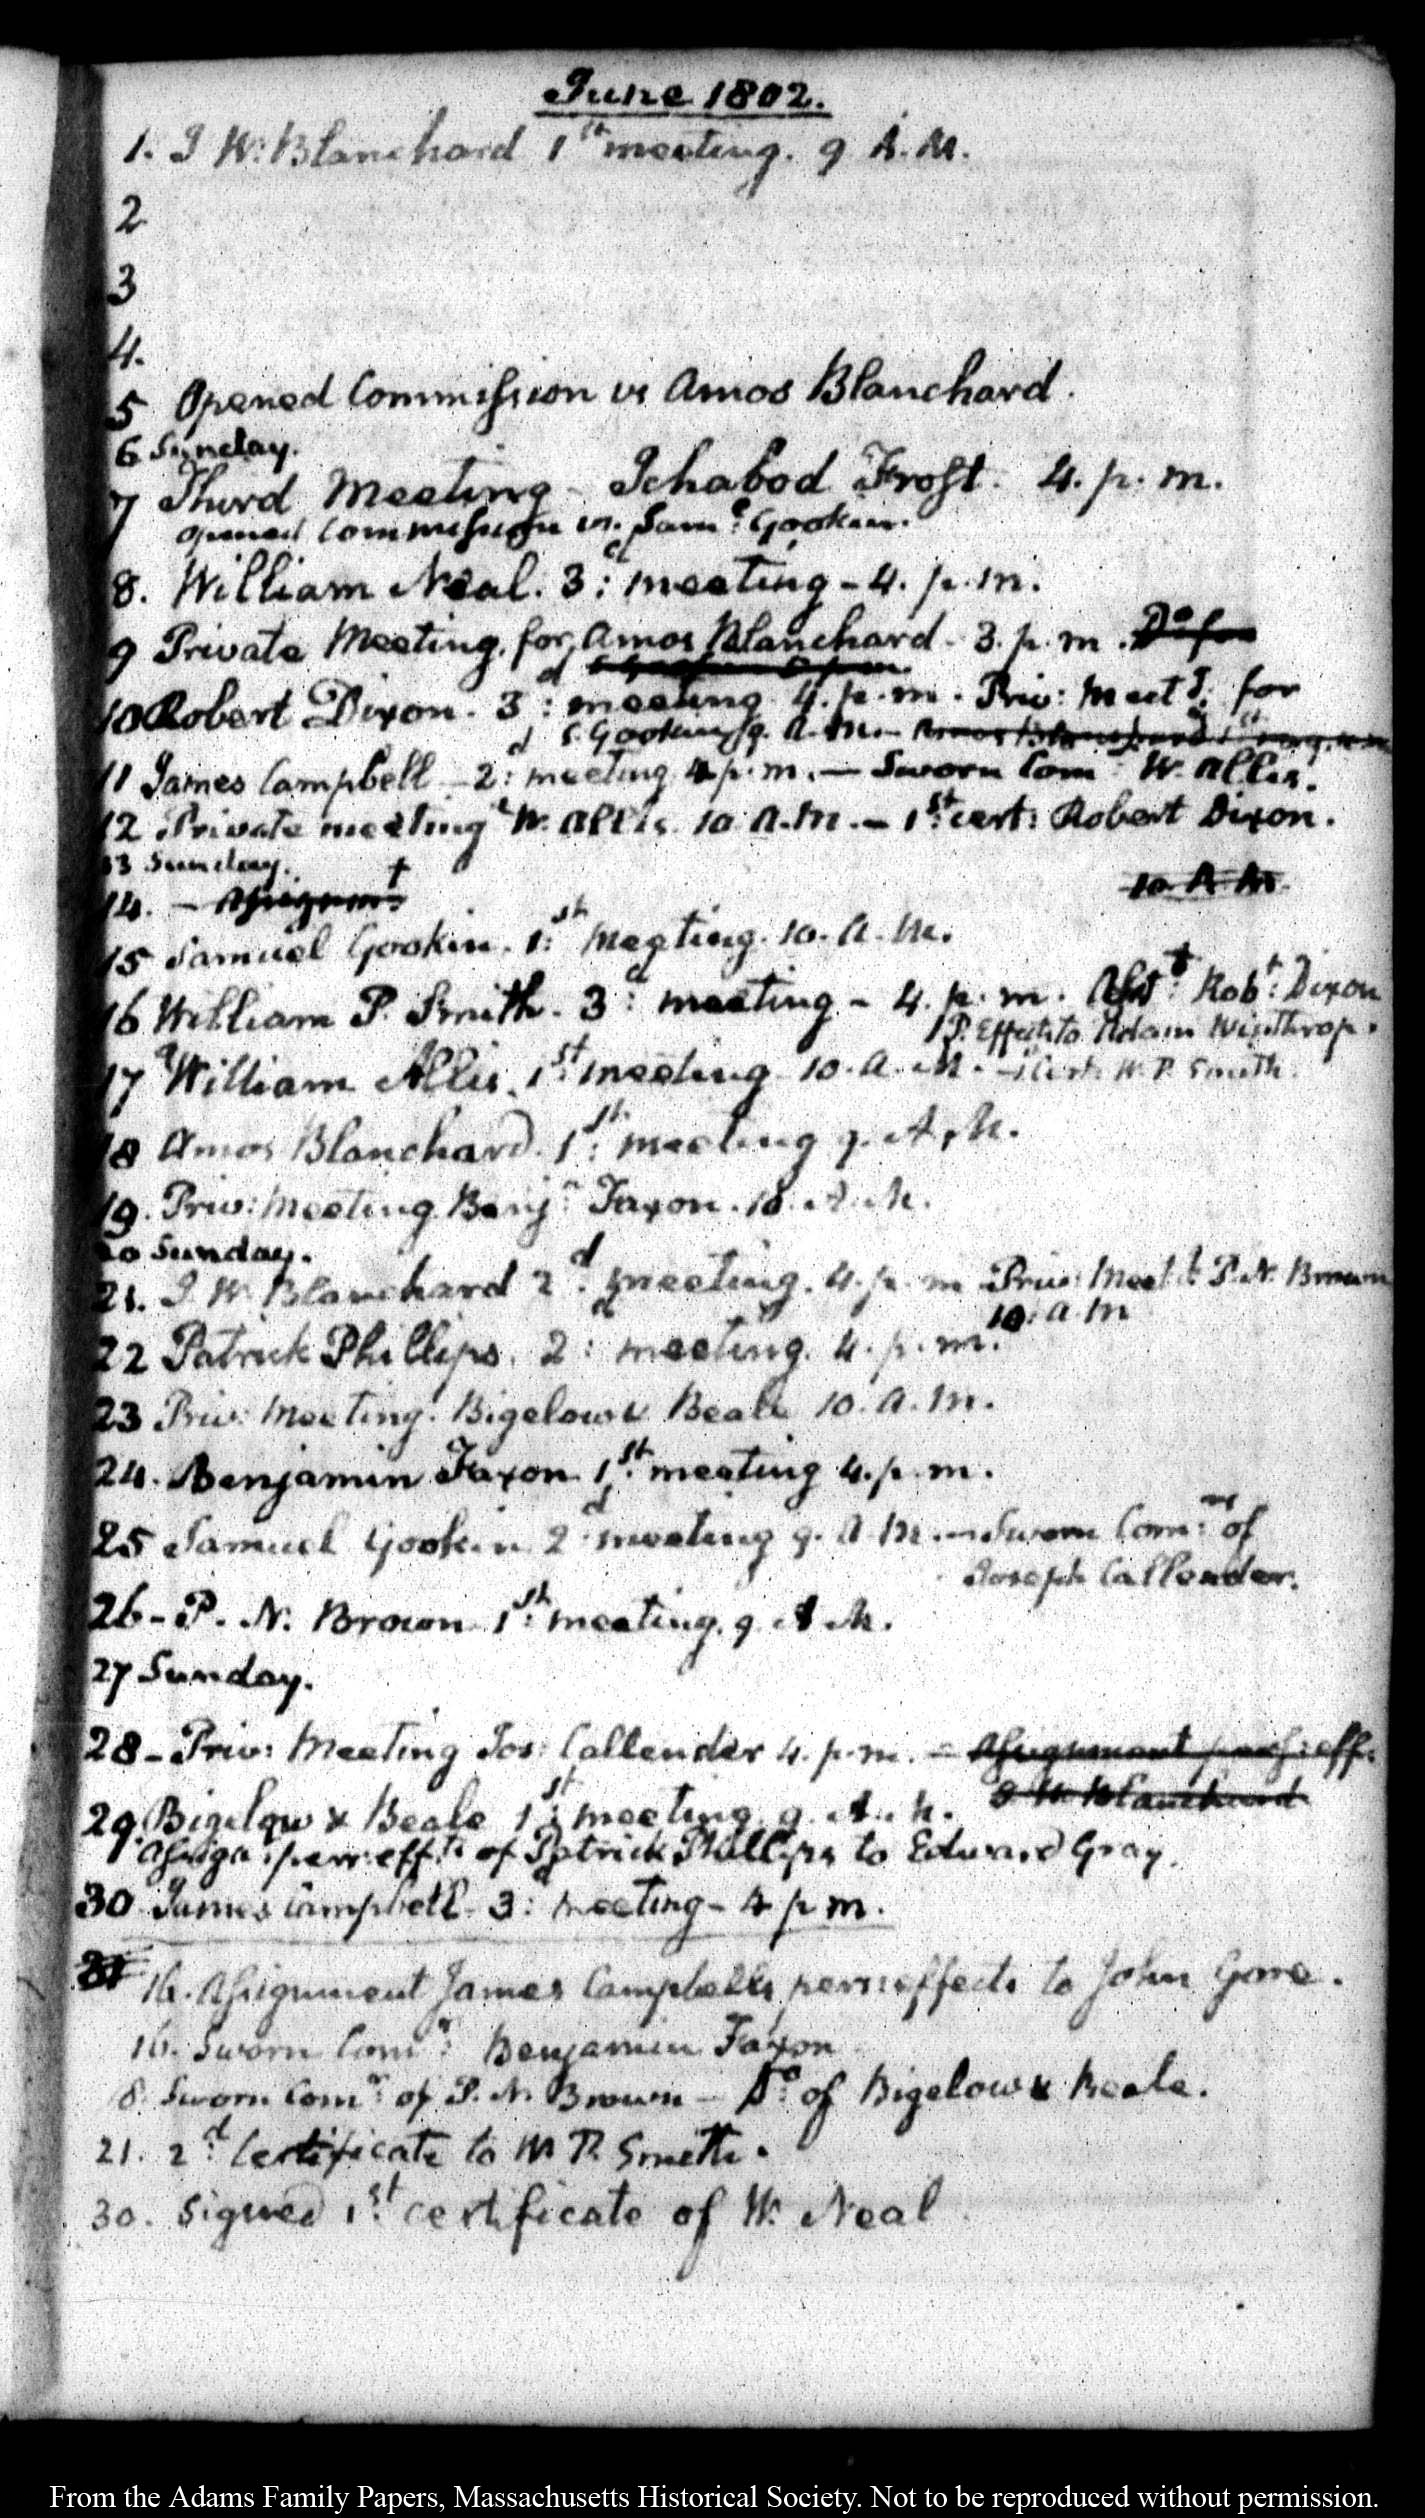 June 1802.
1. J W. Blanchard 1st meeting. 9 A.M.
2
3
4.
5 Opened Commission vs Amos Blanchard.
6 Sunday.
7 Third Meeting - Ichabod Frost. 4. p. m.
opened Commission vs. Saml: Gookin.
8. William Neal. 3:d meeting - 4. p. m.
9 Private Meeting, for Amos Blanchard - 3. p. m. Do for
S Gookin
p. m.
10 Robert Dixon. 3:d meeting 4. p. m. Priv: Meetg: for
S. Gookin 9. A.M. - Amos Blanchard 1st
11 James Campbell - 2:d meeting 4 p. m. - Sworn Com W. Allis.
12 Private meeting W. Allis. 10 A.M. - 1st: cert: Robert Dixon.
13 Sunday.
10 A M
14. - Assignmt
15 Samuel Gookin. 1:st Meeting. 10. A. M.
16 William P. Smith. 3:d meeting - 4. p. m. Robt: Dixon
P. Effects to Adam Winthrop.
17 William Allis. 1:st meeting 10. A. M. - 1 Cert: W. P. Smith.
18 Amos Blanchard. 1:st meeting 9. A. M.
19. Priv: Meeting Benjn Faxon. 10. A. M.
20 Sunday.
21. J. W. Blanchard 2:d meeting. 4. p. m Priv: Meet P. N. Brown
10. A M
22 Patrick Phillips. 2:d meeting. 4. p. m.
23 Priv: Meeting. Bigelow & Beale 10. A. M.
24. Benjamin Faxon 1:st meeting 4. p. m.
25 Samuel Gookin 2:d meeting 9. A. M. - Sworn Com:rs of
Joseph Callender.
26 - P. N. Brown 1:st meeting. 9 A M.
27 Sunday.
28 - Priv: Meeting Jos: Callender 4. p. m. - Assignment pers: eff:
J W Blanchard
29 Bigelow & Beale 1:st meeting 9. A. M.
Assign: pers: effts of Patrick Phillips to Edward Gray.
30 James Campbell - 3:d meeting - 4 p m.
31
16. Assignment James Campbells pers: effects to John Gore.
16. Sworn Comr: Benjamin Faxon
8. Sworn Comr: of P. N. Brown - Do: of Bigelow & Beale.
21. 2:d Certificate to W P. Smith.
30. Signed 1:st certificate of W. Neal
From the Adams Family Papers, Massachusetts Historical Society. Not to be reproduced without permission.